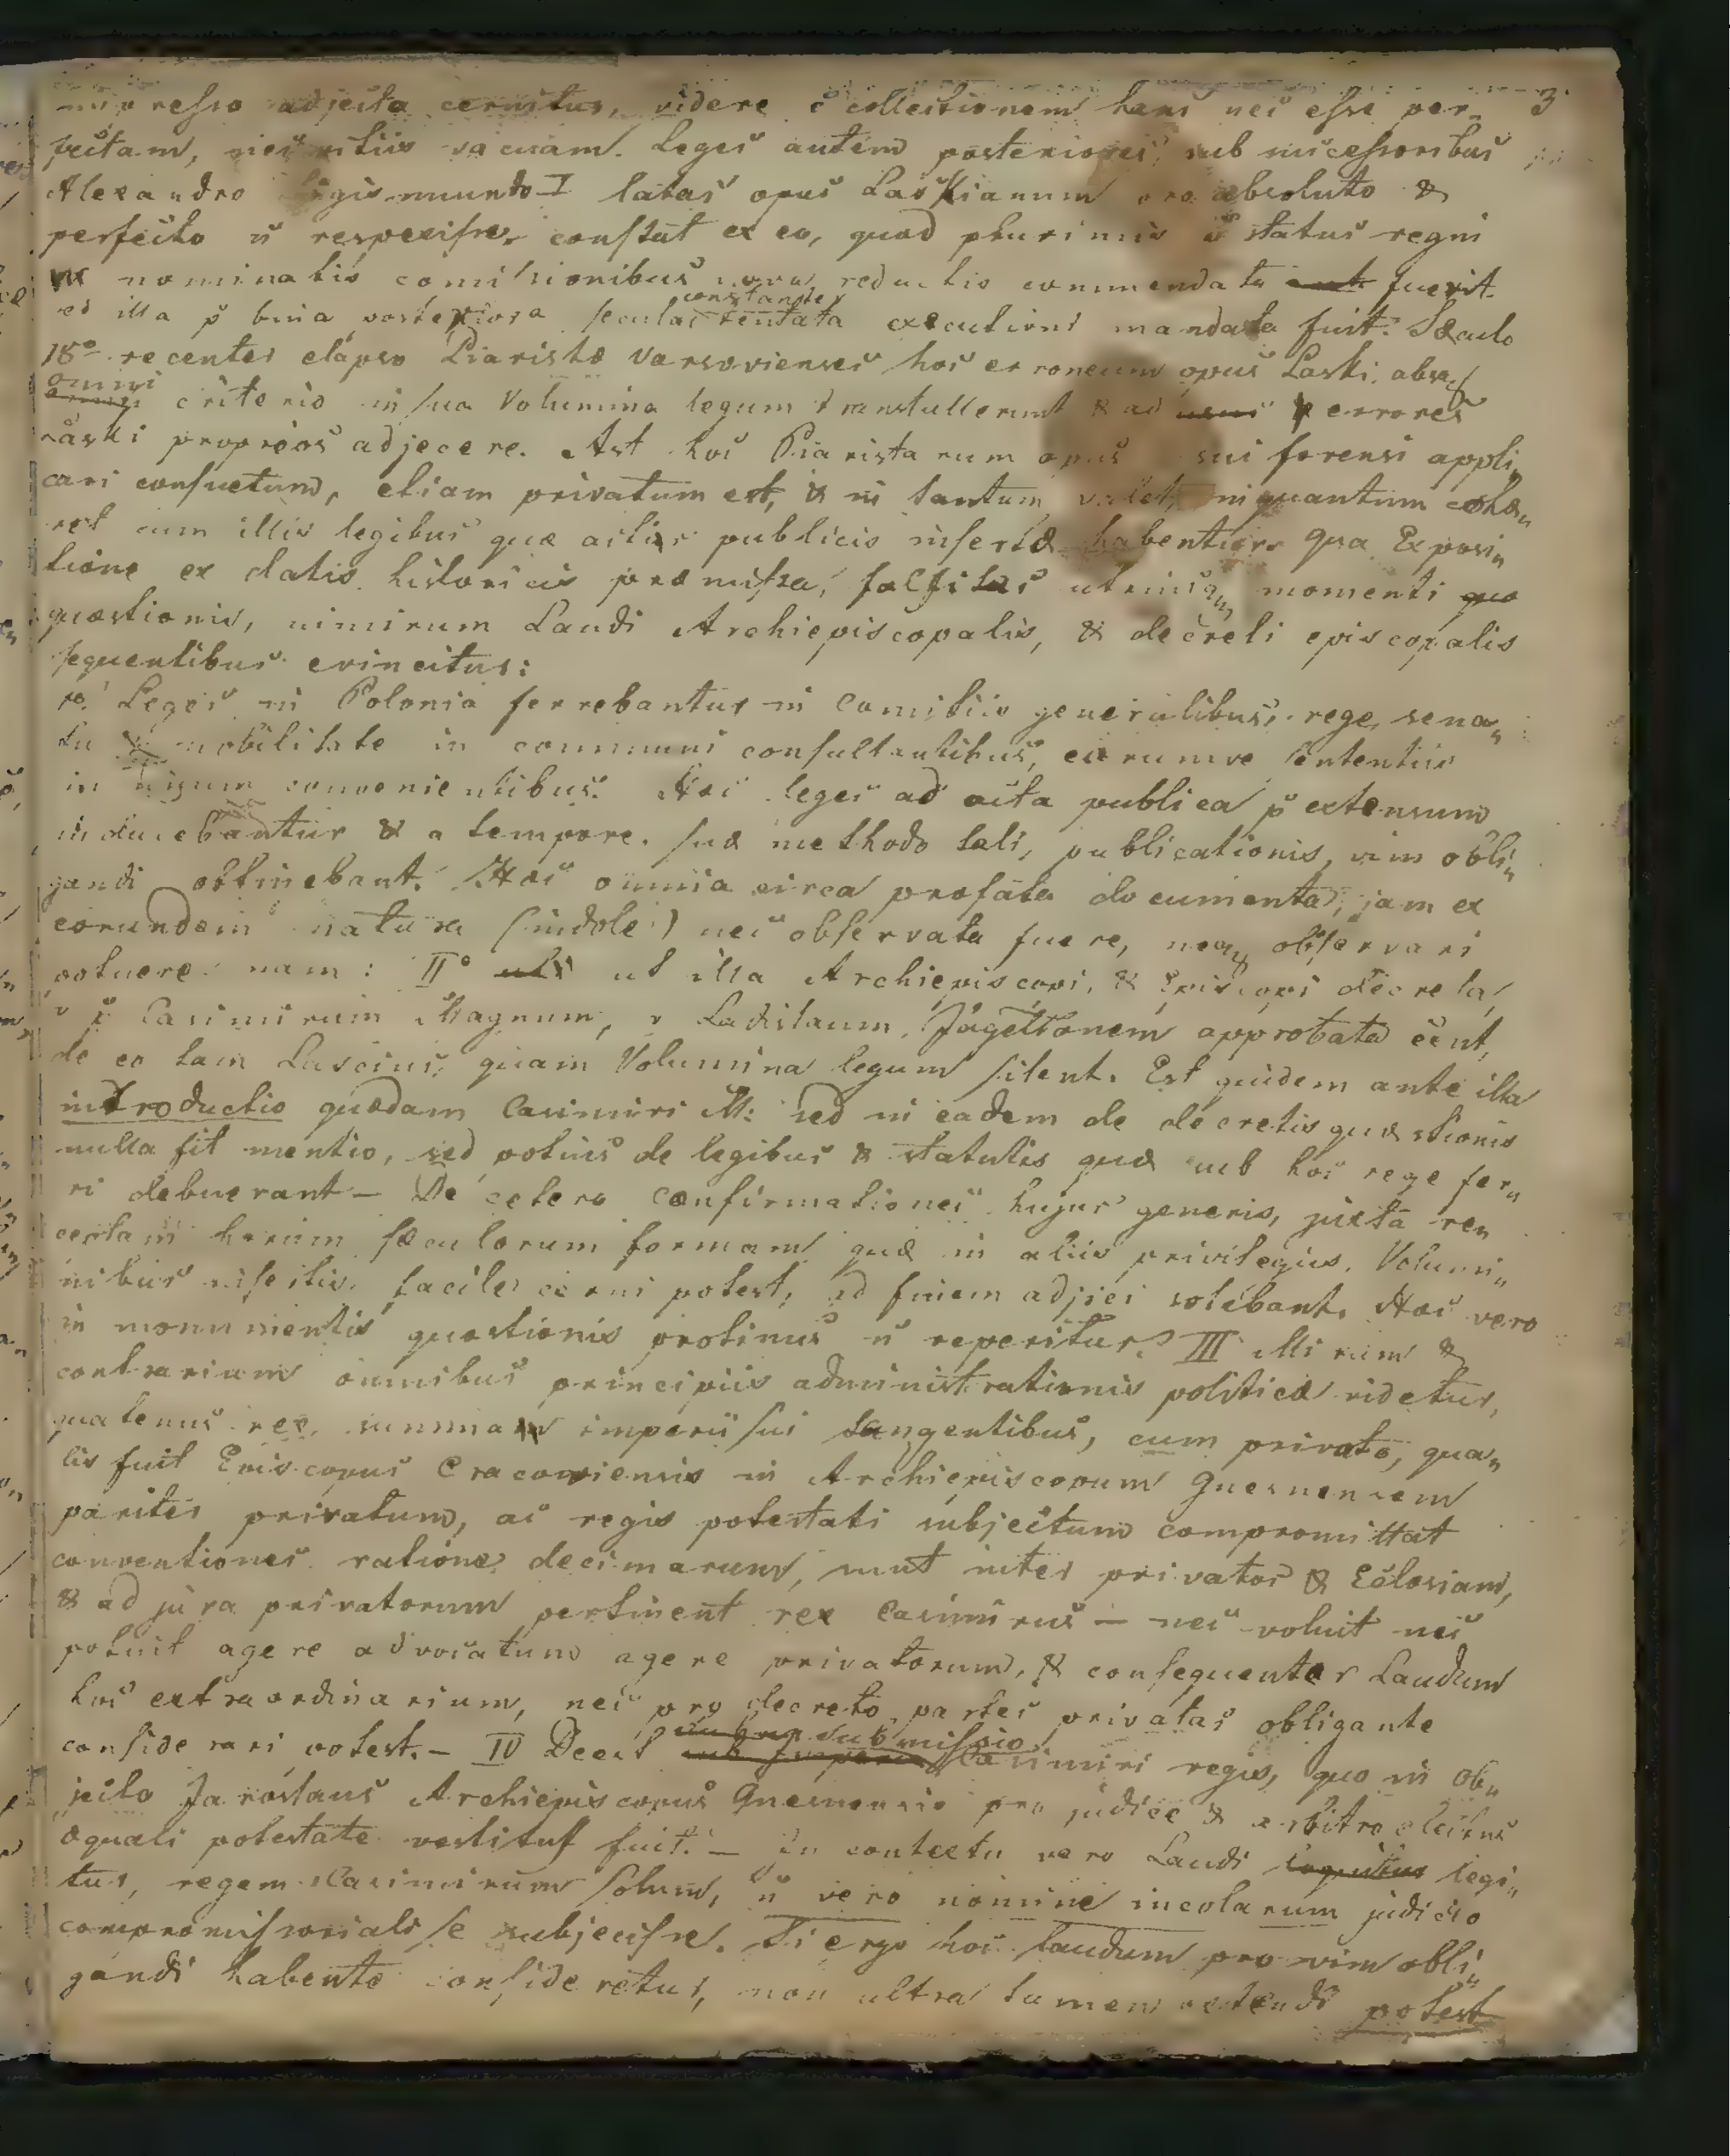 resso adjecta cernitur, videre ē collectionem hanc nec esse per„ 3
fectam, nec vitiis vacuam. Leges autem posteriores sub successoribus
Alexandro Sigismundo I latas opus Laskianum pro absoluto &
perfecto n̄ respexisse constat ex eo, quod plurimis a status regni
nominatis comissionibus nova reductio commendata fuerit.
illa p̄ bina posteriora secula constanter tentata executioni mandata fuit. Sæculo
18º recenter elapso Piaristæ Varsovienses hoc erroneum opus Laski absq
omni criterio in sua Volumina legum transtullerunt & ad errores
Laski proprios adjecere. Ast hoc Piaristarum opus usui forensi appli„
cari consuetum, etiam privatum est, & in tantum valet, inquantum cohæ„
ret cum illis legibus quæ actis publicis insertæ habentur. Qua Exposi„
tione ex datis historicis præmissa, falsitas utriusq momenti quæ
quæstionis, nimirum Laudi Archiepiscopalis, & decreti episcopalis
sequentibus evincitur:
1º Leges in Polonia ferrebantur in Comitiis generalibus, rege, sena„
tu & nobilitate in communi consultantibus, earumve sententiis
in unum convenientibus. Hæc leges ad acta publica p̄ extensum
inducebantur & a tempore suæ methodo tali, publicationis, vim obli„
gandi obtinebant. Hæc omnia circa præfata documenta, jam ex
eorundem natura (indole) nec observata fuere, neq observari
potuere nam: IIº ut illa Archiepiscopi, & Episcopi decreta,
v p̄ Casimirum Magnum, v Ladislaum Jagellonem approbata eēnt,
de eo tam Lascius, quam Volumina legum silent. Est quidem ante illa
introductio quædam Casimiri M: sed in eadem de decretis quæstionis
nulla fit mentio, sed potius de legibus & statutis quæ sub hoc rege fer„
ri debuerant — De cetero confirmationes hujus generis, juxta re„
ceptam horum sæculorum formam quæ in aliis privilegiis, Volumi„
nibus insertis, facile cerni potest, ad finem adjici solebant. Hæc vero
in monumentis quæstionis protinus n̄ reperitur. III Mirum &
contrarium omnibus principiis administrationis politicæ videtur,
quatenus rex, summam imperii sui tangentibus, cum privato, qua„
lis fuit Episcopus Cracoviensis in Archiepiscopum Gnesnensem
pariter privatum, ac regis potestati subjectum compromittat
conventiones ratione decimarum, sunt inter privatos & Ecclesiam,
& ad jura privatorum pertinent rex Casimirus — nec voluit nec
potuit agere advocatum agere privatorum, & consequenter Laudum
hoc extraordinarium, nec pro decreto partes privatas obligante
considerari potest. — IV Deest submissio Casimiri regis, quo in ob„
jecto Jaroslaus Archiepiscopus Gnesnensis pro judice & arbitro electus
æquali potestate vestitus fuit. — In contextu vero Laudi legi„
tur, regem Casimirum solum, n̄ vero nomine incolarum judicio
compromissoriali se subjecisse. Si ergo hoc laudum pro vim obli„
gandi habente consideretur, non ultra tamen extendi potest